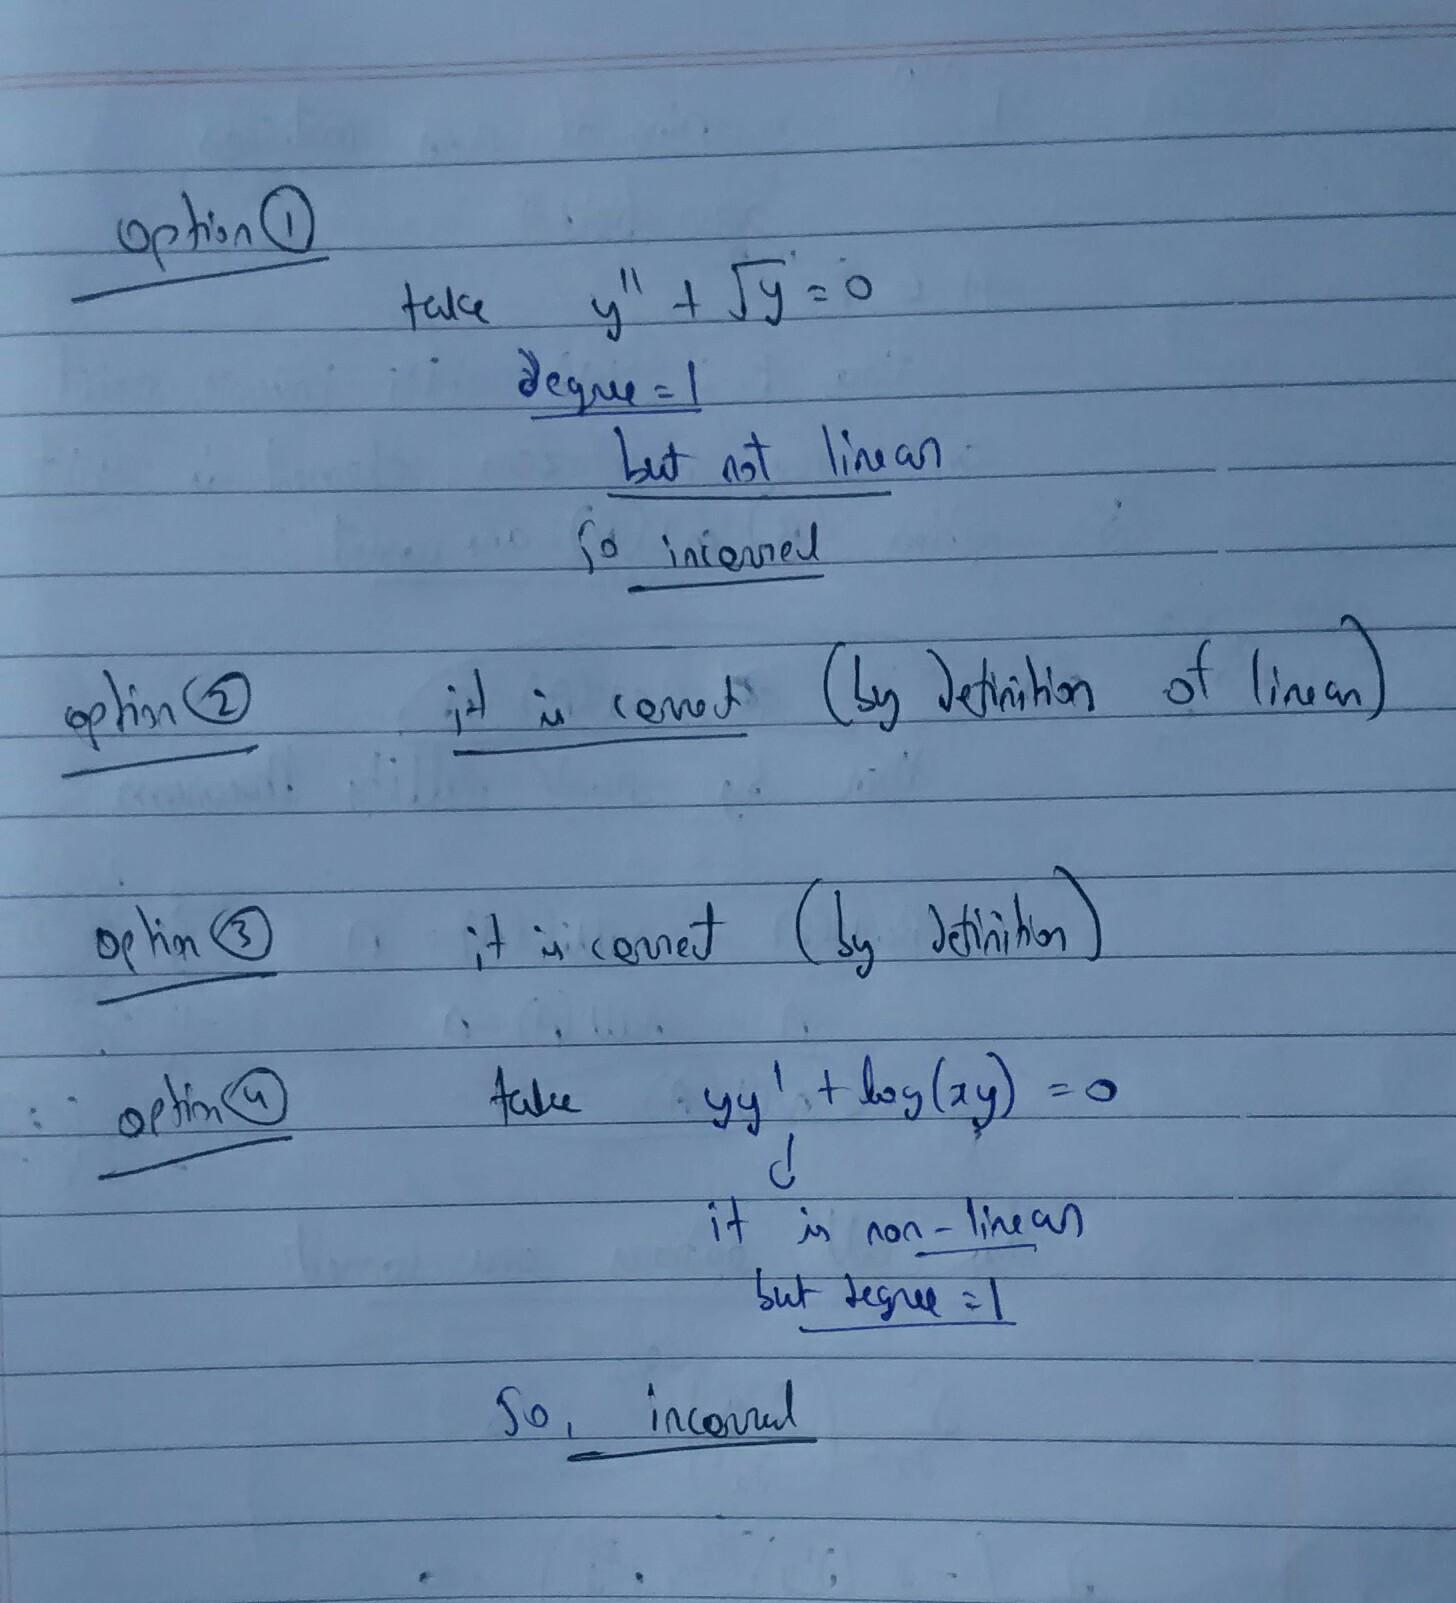 option ①
take y'' + √y = 0
degree = 1
but not linear
so incorrect
option ② it is correct (by definition of linear)
option ③ it is correct (by definition)
option ④ take yy' + log(xy) = 0
↓
it is non-linear
but degree = 1
So, incorrect